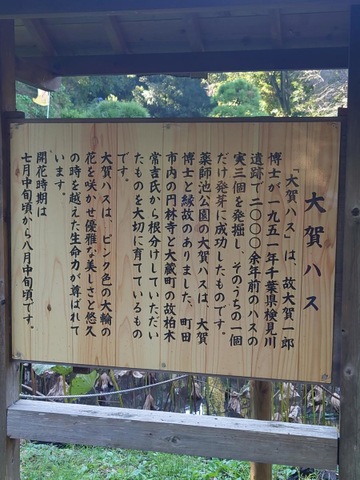 大賀ハス
「大賀ハス」は、故大賀一郎
博士が一九五一年千葉県検見川
遺跡で二〇〇〇余年前のハスの
実三個を発掘し、そのうちの一個
だけ発芽に成功したものです。
薬師池公園の大賀ハスは、大賀
博士と縁故のありました、町田
市内の円林寺と大蔵町の故柏木
常吉氏から根分けしていただい
たものを大切に育てているもの
です。
大賀ハスは、ピンク色の大輪の
花を咲かせ優雅な美しさと悠久
の時を越えた生命力が尊ばれて
います。
開花時期は
七月中旬頃から八月中旬頃です。